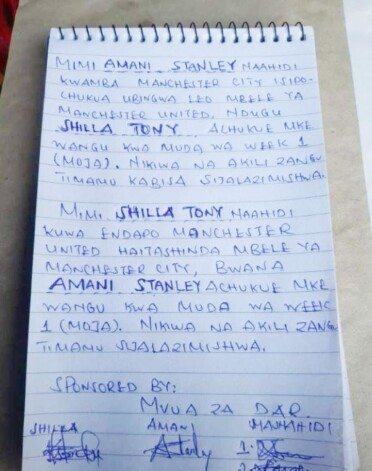 MIMI AMANI STANLEY NAAHIDI
KWAMBA MANCHESTER CITY ISIPO-
CHUKUA UBINGWA LEO MBELE YA
MANCHESTER UNITED, NDUGU
SHILLA TONY ACHUKUE MKE
WANGU KWA MUDA WA WEEK 1
(MOJA). NIKIWA NA AKILI ZANGU
TIMAMU KABISA SIJALAZIMISHWA.
MIMI SHILLA TONY NAAHIDI
KUWA ENDAPO MANCHESTER
UNITED HAITASHINDA MBELE YA
MANCHESTER CITY, BWANA
AMANI STANLEY ACHUKUE MKE
WANGU KWA MUDA WA WEEK
1 (MOJA). NIKIWA NA AKILI ZANG
TIMAMU SIJALAZIMISHWA.
SPONSORED BY:
MVUA ZA DAR.
SHILLA AMANI MASHAHIDI
1.
2.